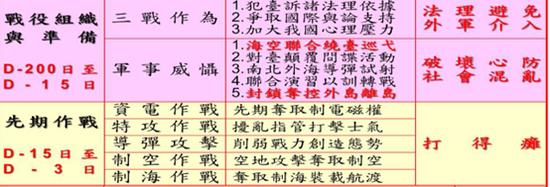 戰役組織
與準備
D-200日至
D-15日
三戰作為
1.犯臺訴諸法理依據
2.爭取國際輿論支持
3.加大我國心理壓力
法理避免
外軍介入
軍事威懾
1.海空聯合繞臺巡弋
2.對臺顛覆間諜活動
3.南北外海導彈試射
4.聯合演習以訓轉戰
5.封鎖奪控外島離島
破壞心防
社會混亂
先期作戰
D-15日至
D-3日
資電作戰
先期奪取制電磁權
特攻作戰
擾亂指管打擊士氣
導彈攻擊
削弱戰力創造態勢
制空作戰
空地攻擊奪取制空
制海作戰
奪取制海裝載航渡
打得癱